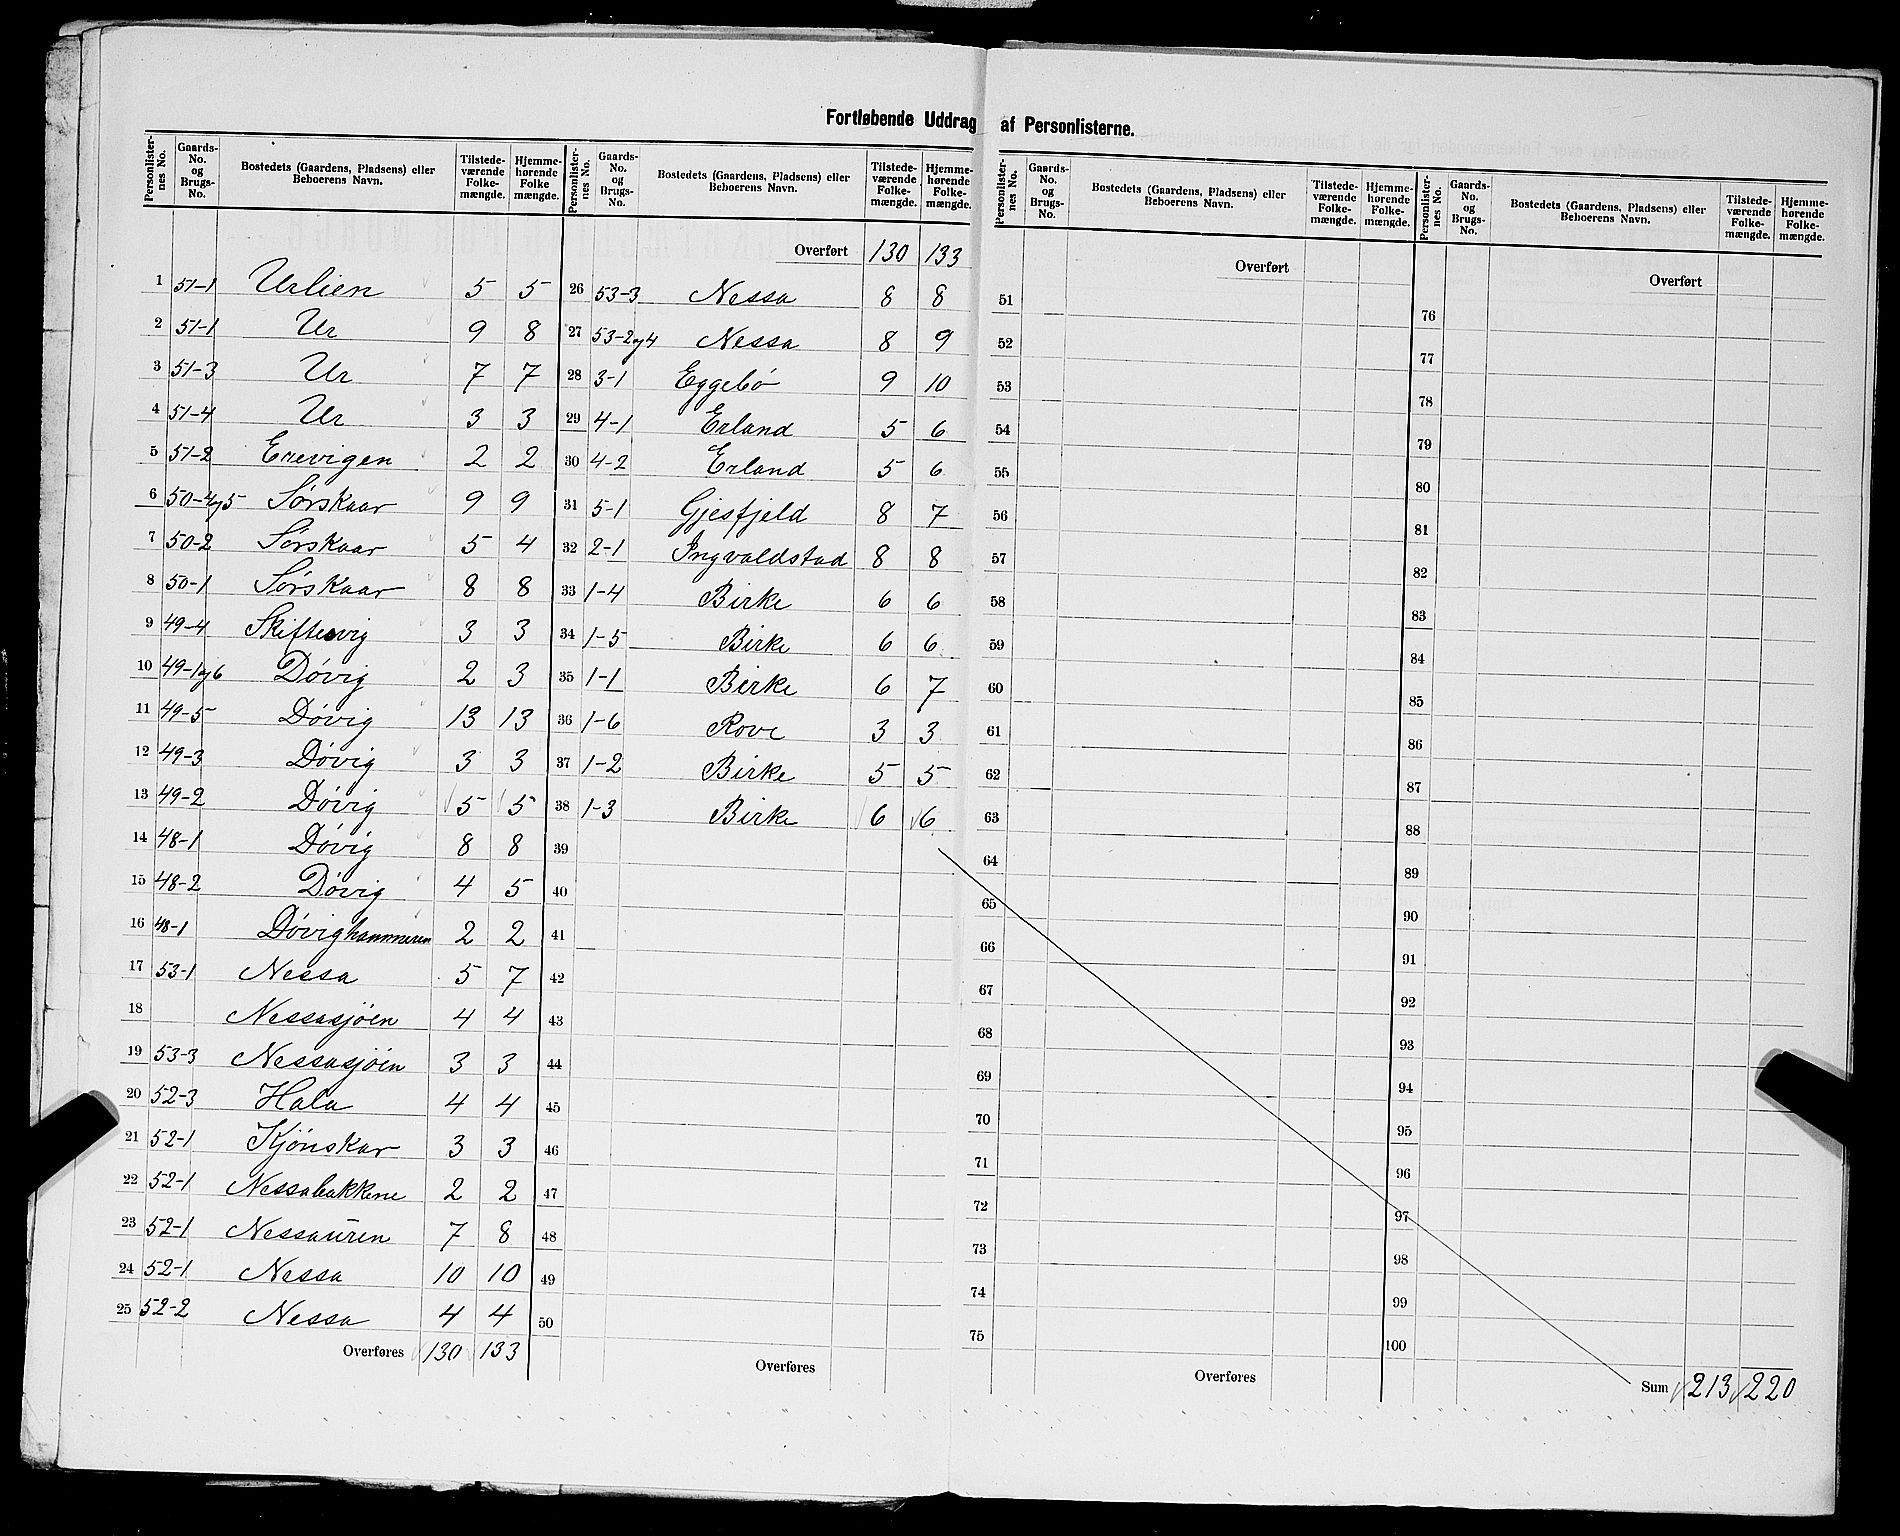 Fortløbende Uddrag af Personlisterne.
Personlisternes No. | Gaards-No. og Brugs-No. | Bostedets (Gaardens, Pladsens) eller Beboerens Navn. | Tilstedeværende Folkemængde. | Hjemmehørende Folkemængde.
1 51-1 Urlien 5 5
2 51-1 Ur 9 8
3 51-3 Ur 7 7
4 51-4 Ur 3 3
5 51-2 Erevigen 2 2
6 50-4og5 Sørskaar 9 9
7 50-2 Sørskaar 5 4
8 50-1 Sørskaar 8 8
9 49-4 Skiftesvig 3 3
10 49-1og6 Døvig 2 3
11 49-5 Døvig 13 13
12 49-3 Døvig 3 3
13 49-2 Døvig 5 5
14 48-1 Døvig 8 8
15 48-2 Døvig 4 5
16 48-1 Døvighammeren 2 2
17 53-1 Nessa 5 7
18 Nessasjöen 4 4
19 53-3 Nessasjöen 3 3
20 52-3 Hala 4 4
21 52-1 Kjönskar 3 3
22 52-1 Nessabakkene 2 2
23 52-1 Nessaūren 7 8
24 52-1 Nessa 10 10
25 52-2 Nessa 4 4
Overføres 130 133
Personlisternes No. | Gaards-No. og Brugs-No. | Bostedets (Gaardens, Pladsens) eller Beboerens Navn. | Tilstedeværende Folkemængde. | Hjemmehørende Folkemængde.
Overført 130 133
26 53-3 Nessa 8 8
27 53-2og4 Nessa 8 9
28 3-1 Eggebø 9 10
29 4-1 Erland 5 6
30 4-2 Erland 5 6
31 5-1 Gjesfjeld 8 7
32 2-1 Ingvaldstad 8 8
33 1-4 Birke 6 6
34 1-5 Birke 6 6
35 1-1 Birke 6 7
36 1-6 Rove 3 3
37 1-2 Birke 5 5
38 1-3 Birke 6 6
39
40
41
42
43
44
45
46
47
48
49
50
Overføres
Personlisternes No. | Gaards-No. og Brugs-No. | Bostedets (Gaardens, Pladsens) eller Beboerens Navn. | Tilstedeværende Folkemængde. | Hjemmehørende Folkemængde.
Overført
51
52
53
54
55
56
57
58
59
60
61
62
63
64
65
66
67
68
69
70
71
72
73
74
75
Overføres
Personlisternes No. | Gaards-No. og Brugs-No. | Bostedets (Gaardens, Pladsens) eller Beboerens Navn. | Tilstedeværende Folkemængde. | Hjemmehørende Folkemængde.
Overført
76
77
78
79
80
81
82
83
84
85
86
87
88
89
90
91
92
93
94
95
96
97
98
99
100
Sum 213 220